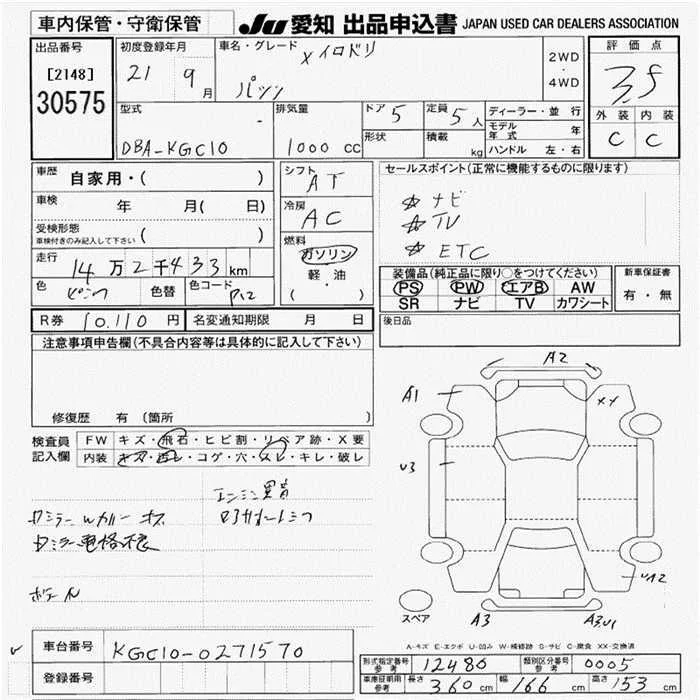 車内保管・守衛保管
JU 愛知 出品申込書 JAPAN USED CAR DEALERS ASSOCIATION
出品番号
[2148]
30575
初度登録年月
21 9月
車名・グレード
X イロドリ
パッソ
2WD
・
4WD
評価点
3.5
外装 内装
C C
型式
DBA-KGC10
排気量
1000 cc
ドア 5
形状
定員 5人
積載 kg
ディーラー・並行
モデル年式 年
ハンドル 左・右
車歴
自家用・( )
車検 年 月( 日)
受検形態
車検付きのみ記入して下さい ( )
走行 14万2千433km
色 ピンク 色替 色コード
R券 10,110円 名変通知期限 月 日
シフト
AT
冷房
AC
燃料
ガソリン
軽・油
( )
セールスポイント(正常に機能するものに限ります)
☆ ナビ
☆ TV
☆ ETC
装備品(純正品に限り○をつけてください)
PS PW エアB AW
SR ナビ TV カワシート
新車保証書
有・無
後日品
注意事項申告欄(不具合内容等は具体的に記入して下さい)
修復歴 有 (箇所
検査員記入欄
FW キズ・飛石・ヒビ割・リペア跡・X要
内装 キズ・汚レ・コゲ・穴・スレ・キレ・破レ
エンジン異音
A2
A1
XX
U3
UA2
A3
A3,U1
スペア
A-キズ E-エクボ U-凹み W-補修跡 S-サビ C-腐食 XX-交換済
車台番号 KGC10-0271570
登録番号
型式指定番号 参考 12480 類別区分番号 参考 0005
車庫証明用 参考 長さ 360cm 幅 166cm 高さ 153cm